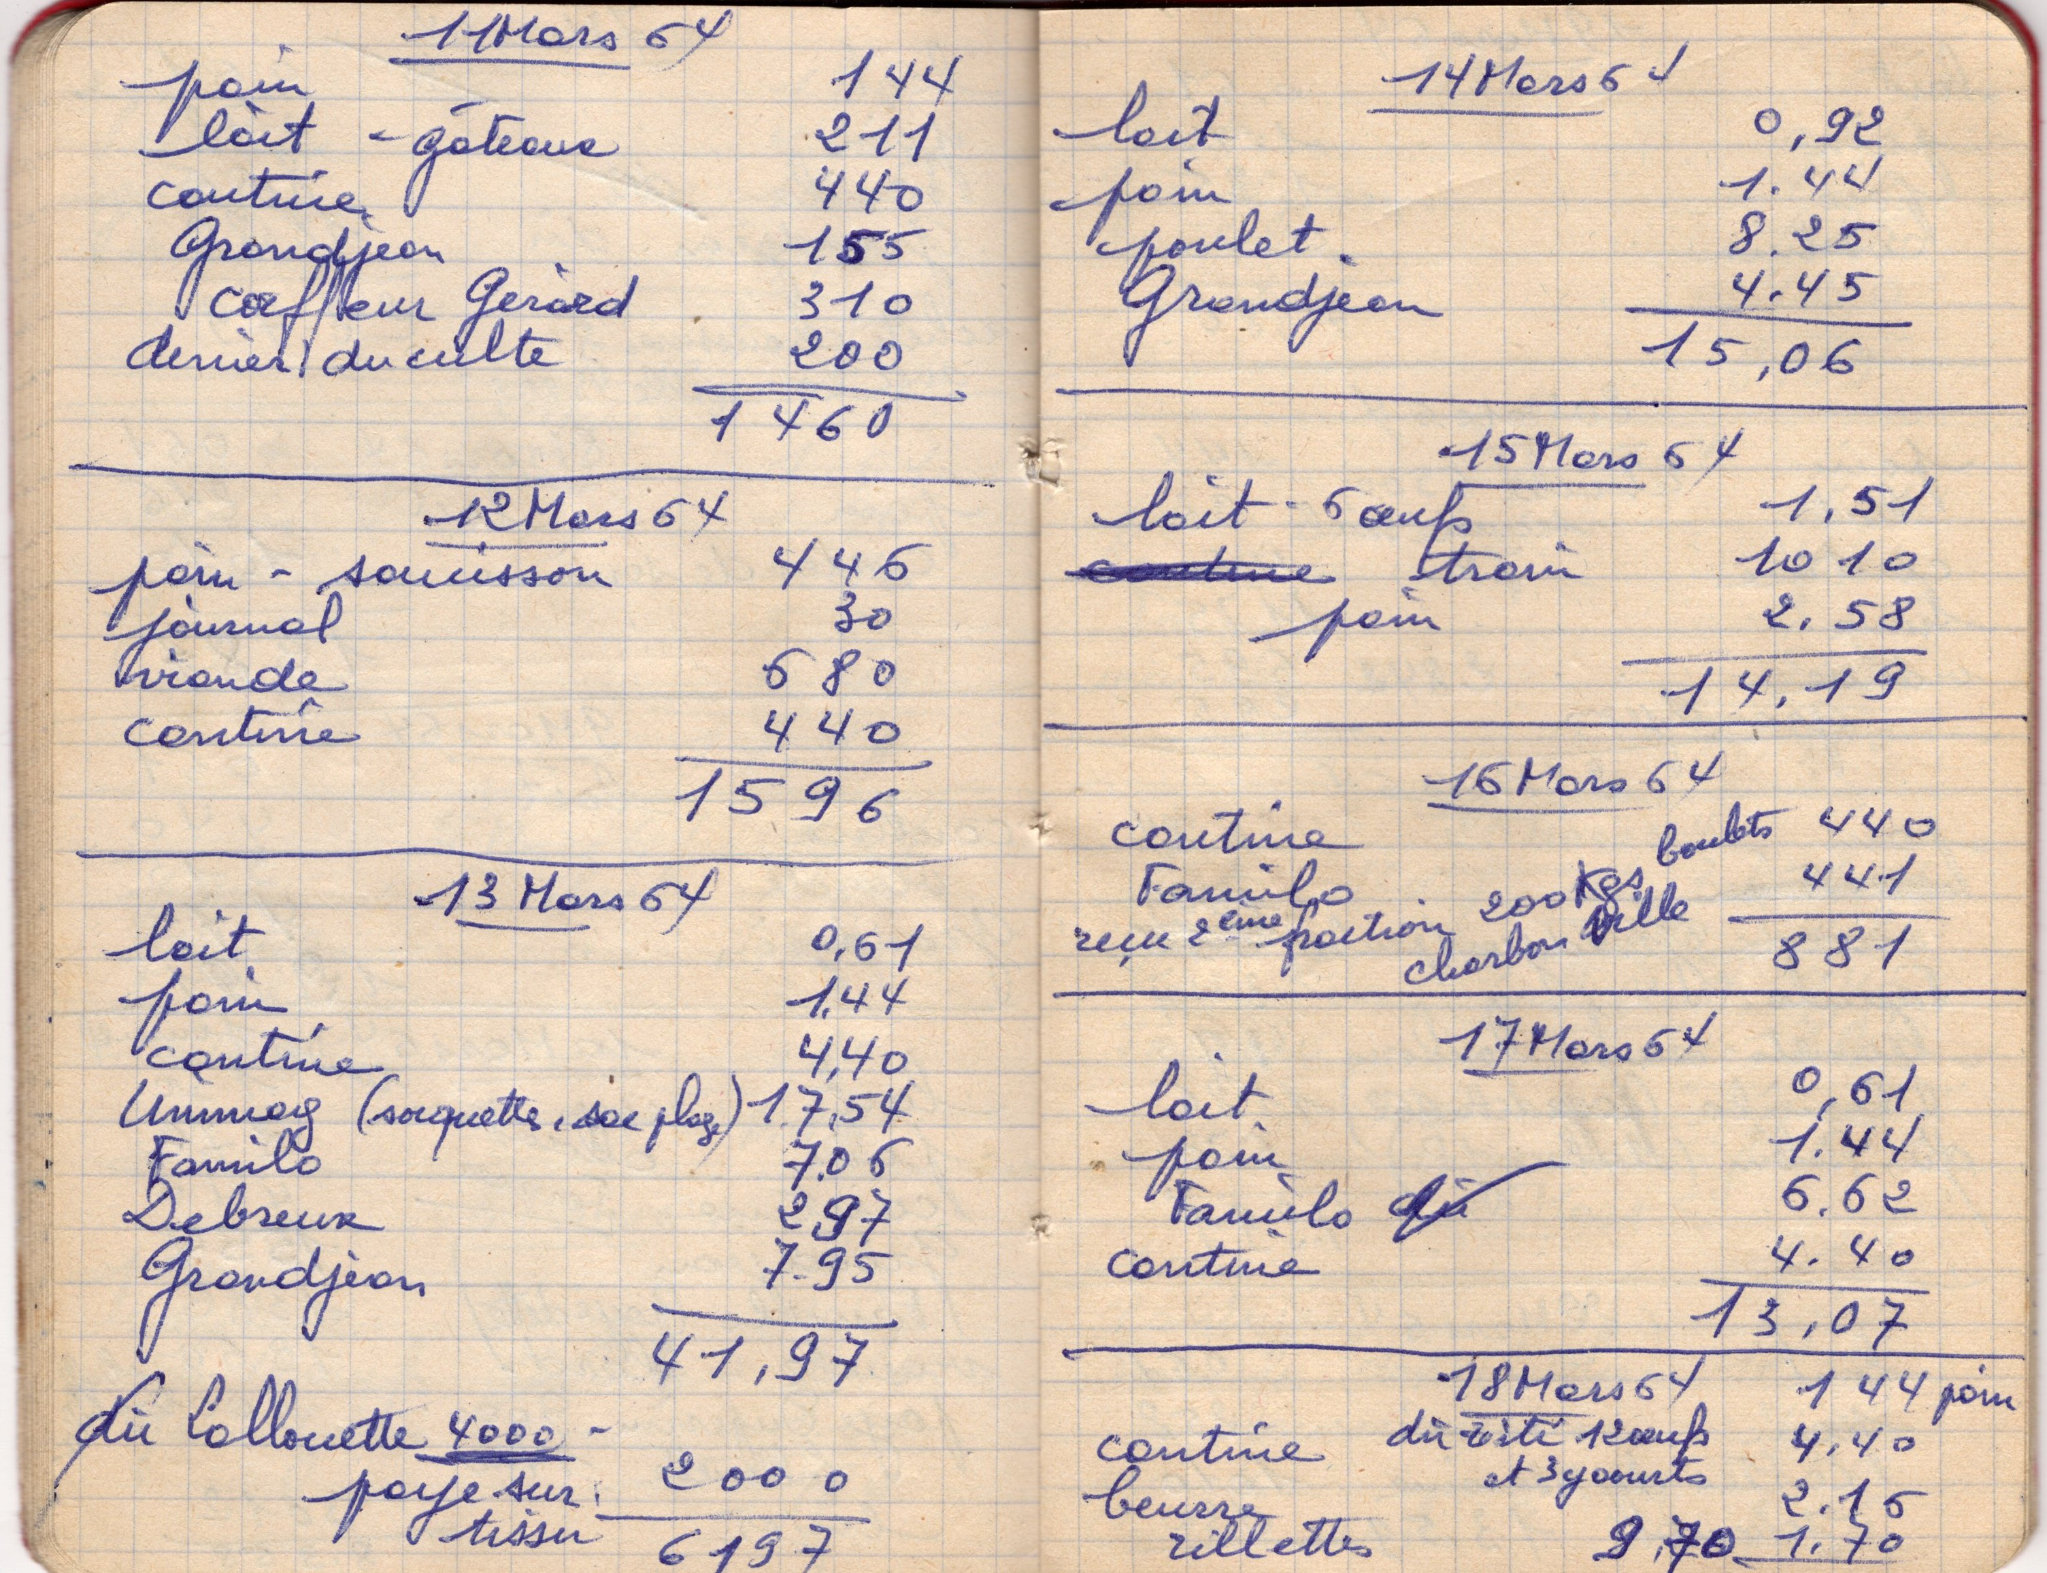 11 Mars 64
pain 144
lait - gâteaux 211
cantine 440
Grandjean 155
coeffeur Gérard 310
denier du culte 200
1460
12 Mars 64
pain - saucisson 446
journal 30
viande 680
cantine 440
1596
13 Mars 64
lait 0,61
pain 1,44
cantine 4,40
Unimag (socquettes, sac plage) 17,54
Familo 7.06
Debreux 2 97
Grandjean 7.95
41,97
dû Lallouette 4000 -
paye sur 2000
tissu 6197
14 Mars 64
lait 0,92
pain 1.44
poulet 8.25
Grandjean 4.45
15,06
15 Mars 64
lait - 6 œufs 1,51
cantine train 10 10
pain 2.58
14,19
16 Mars 64
cantine 440
Familo 441
reçu 2ème fraction 200 Kgs boulets
charbon ville 881
17 Mars 64
lait 0,61
pain 1.44
Familo dû 6.62
cantine 4.40
13,07
18 Mars 64 1 44 pain
cantine dû 12 œufs 4.40
et 3 yaourts
beurre 2.16
rillettes 9,70 1.70